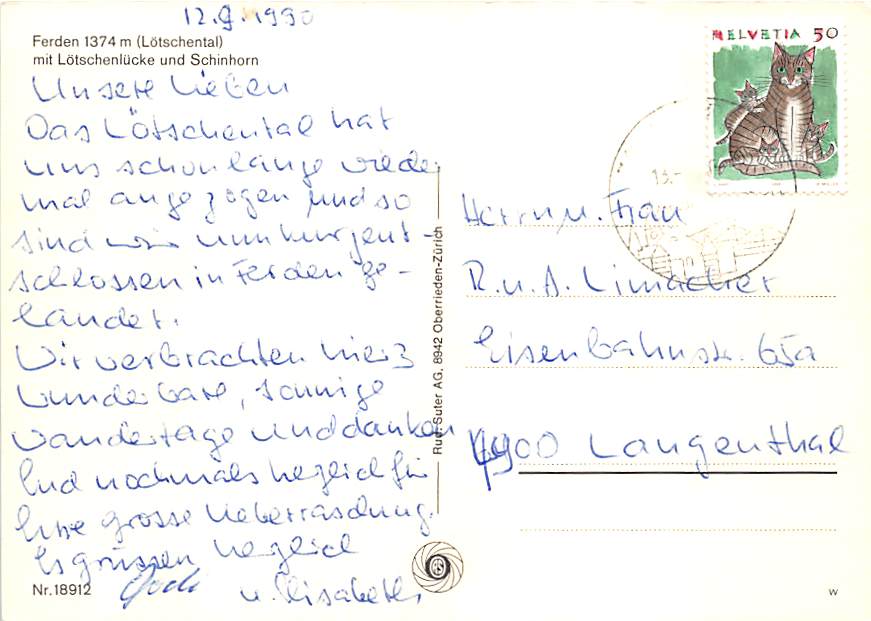 12.9.1990
Ferden 1374 m (Lötschental)
mit Lötschenlücke und Schinhorn
Unsere Lieben
Das Lötschental hat
uns schon lange wieder
mal angezogen und so
sind wir nun kurzent-
schlossen in Ferden ge-
landet.
Wir verbrachten hier 3
wunderbare, sonnige
Wandertage und danken
Eud nochmals herzlich für
Eure grosse Ueberraschung.
Es grüssen herzlich
u. Elisabeth
Nr. 18912
Rud. Suter AG, 8942 Oberrieden-Zürich
HELVETIA 50
13.-
Herrn u. Frau
R. u. A. Limacher
Eisenbahnstr. 65a
4900 Langenthal
W